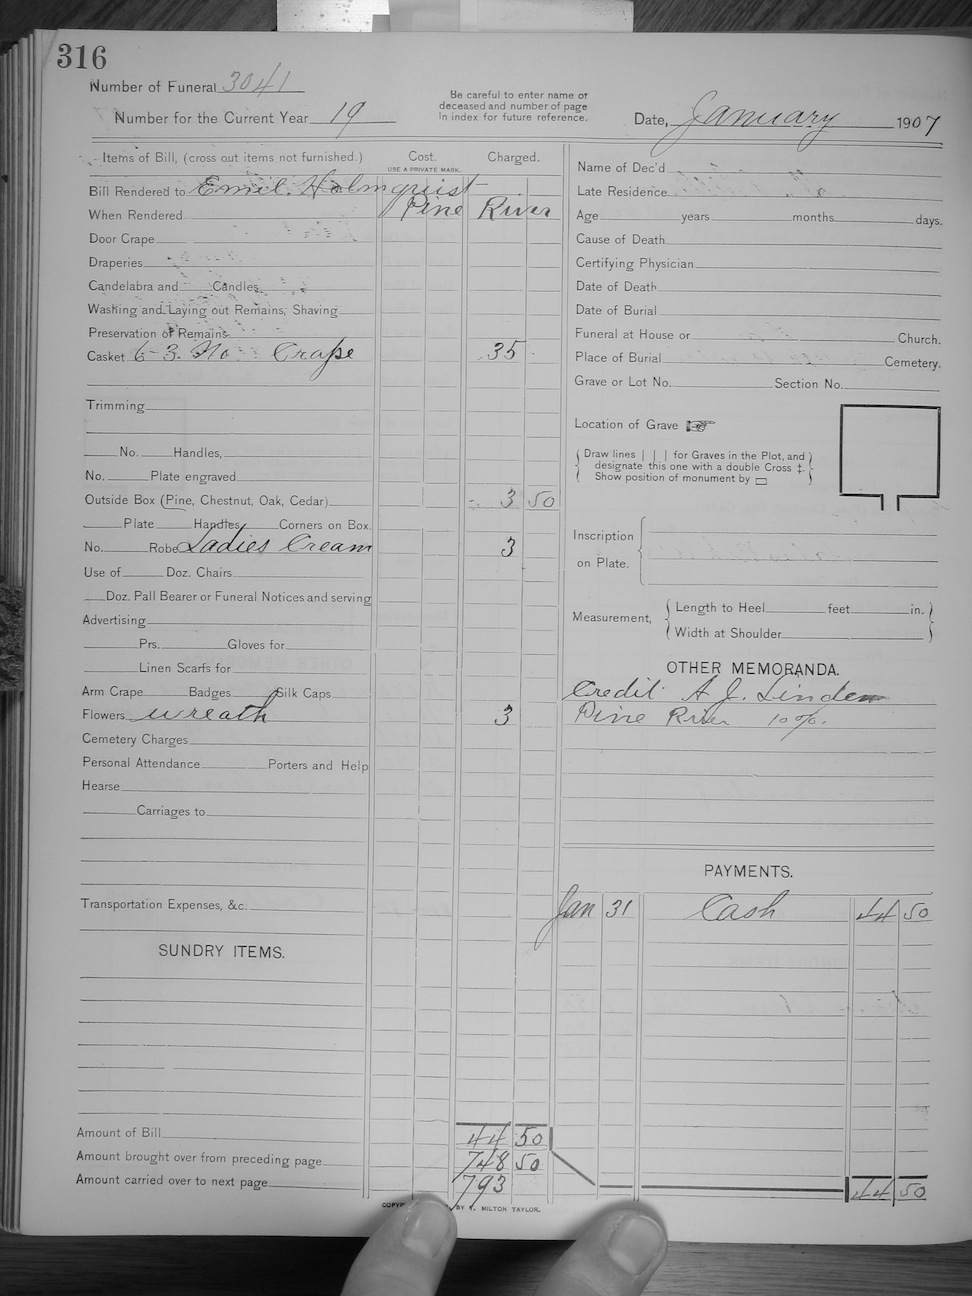 316
Number of Funeral 3041
Number for the Current Year 19
Be careful to enter name of
deceased and number of page
in index for future reference.
Date, January 1907
Items of Bill, (cross out items not furnished.)
Cost.
USE A PRIVATE MARK.
Charged.
Bill Rendered to Emil Holmquist
When Rendered Pine River
Door Crape
Draperies
Candelabra and Candles
Washing and Laying out Remains, Shaving
Preservation of Remains
Casket 6-3 No Crape 35
Trimming
No. Handles,
No. Plate engraved
Outside Box (Pine, Chestnut, Oak, Cedar) 3 50
Plate Handles Corners on Box.
No. Robe Ladies Cream 3
Use of Doz. Chairs
Doz. Pall Bearer or Funeral Notices and serving
Advertising
Prs. Gloves for
Linen Scarfs for
Arm Crape Badges Silk Caps
Flowers wreath 3
Cemetery Charges
Personal Attendance Porters and Help
Hearse
Carriages to
Transportation Expenses, &c.
SUNDRY ITEMS.
Amount of Bill 44 50
Amount brought over from preceding page 748 50
Amount carried over to next page 793
Name of Dec'd
Late Residence
Age years months days.
Cause of Death
Certifying Physician
Date of Death
Date of Burial
Funeral at House or Church.
Place of Burial Cemetery.
Grave or Lot No. Section No.
Location of Grave
Draw lines | | | for Graves in the Plot, and
designate this one with a double Cross ‡.
Show position of monument by
Inscription
on Plate.
Measurement,
Length to Heel feet in.
Width at Shoulder
OTHER MEMORANDA.
Credit A. J. Linden
Pine River 10%.
PAYMENTS.
Jan 31 Cash 44 50
44 50
BY MILTON TAYLOR.